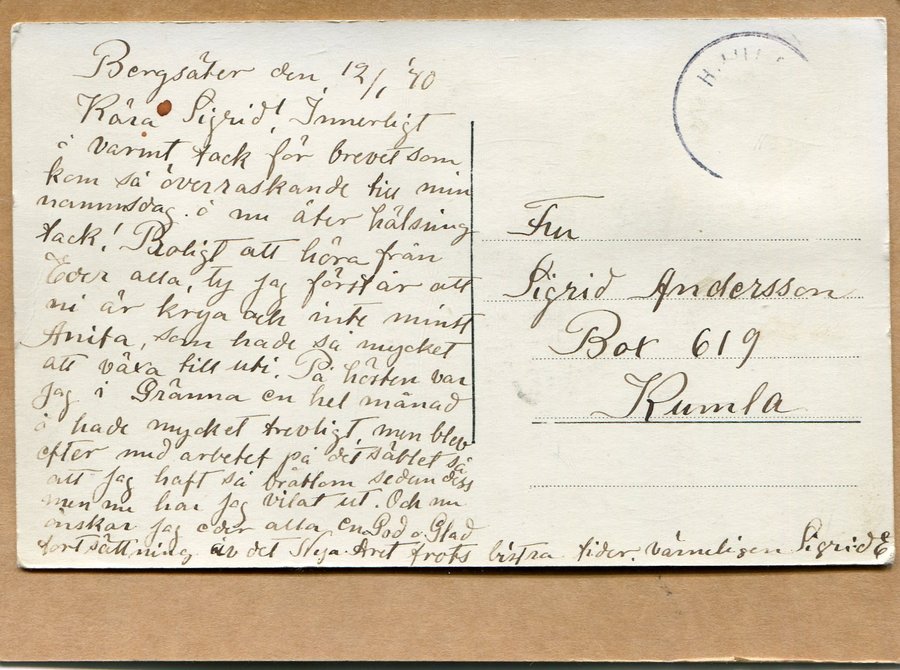 Bergsäter den 12/1 '40
Kära Sigrid! Innerligt
o varmt tack för brevet som
kom så överraskande till min
namnsdag. o nu åter hälsning
tack! Roligt att höra från
Eder alla, ty jag förstår att
ni är krya och inte minst
Anita, som hade så mycket
att växa till uti. På hösten var
jag i Gränna en hel månad
o hade mycket trevligt, men blev
efter med arbetet på det sättet så
att jag haft så bråttom sedan dess
men nu har jag vilat ut. Och nu
önskar jag eder alla en God o. Glad
fortsättning av det Nya Året trots bistra tider. värmeligen Sigrid E
Fru
Sigrid Andersson
Box 619
Kumla